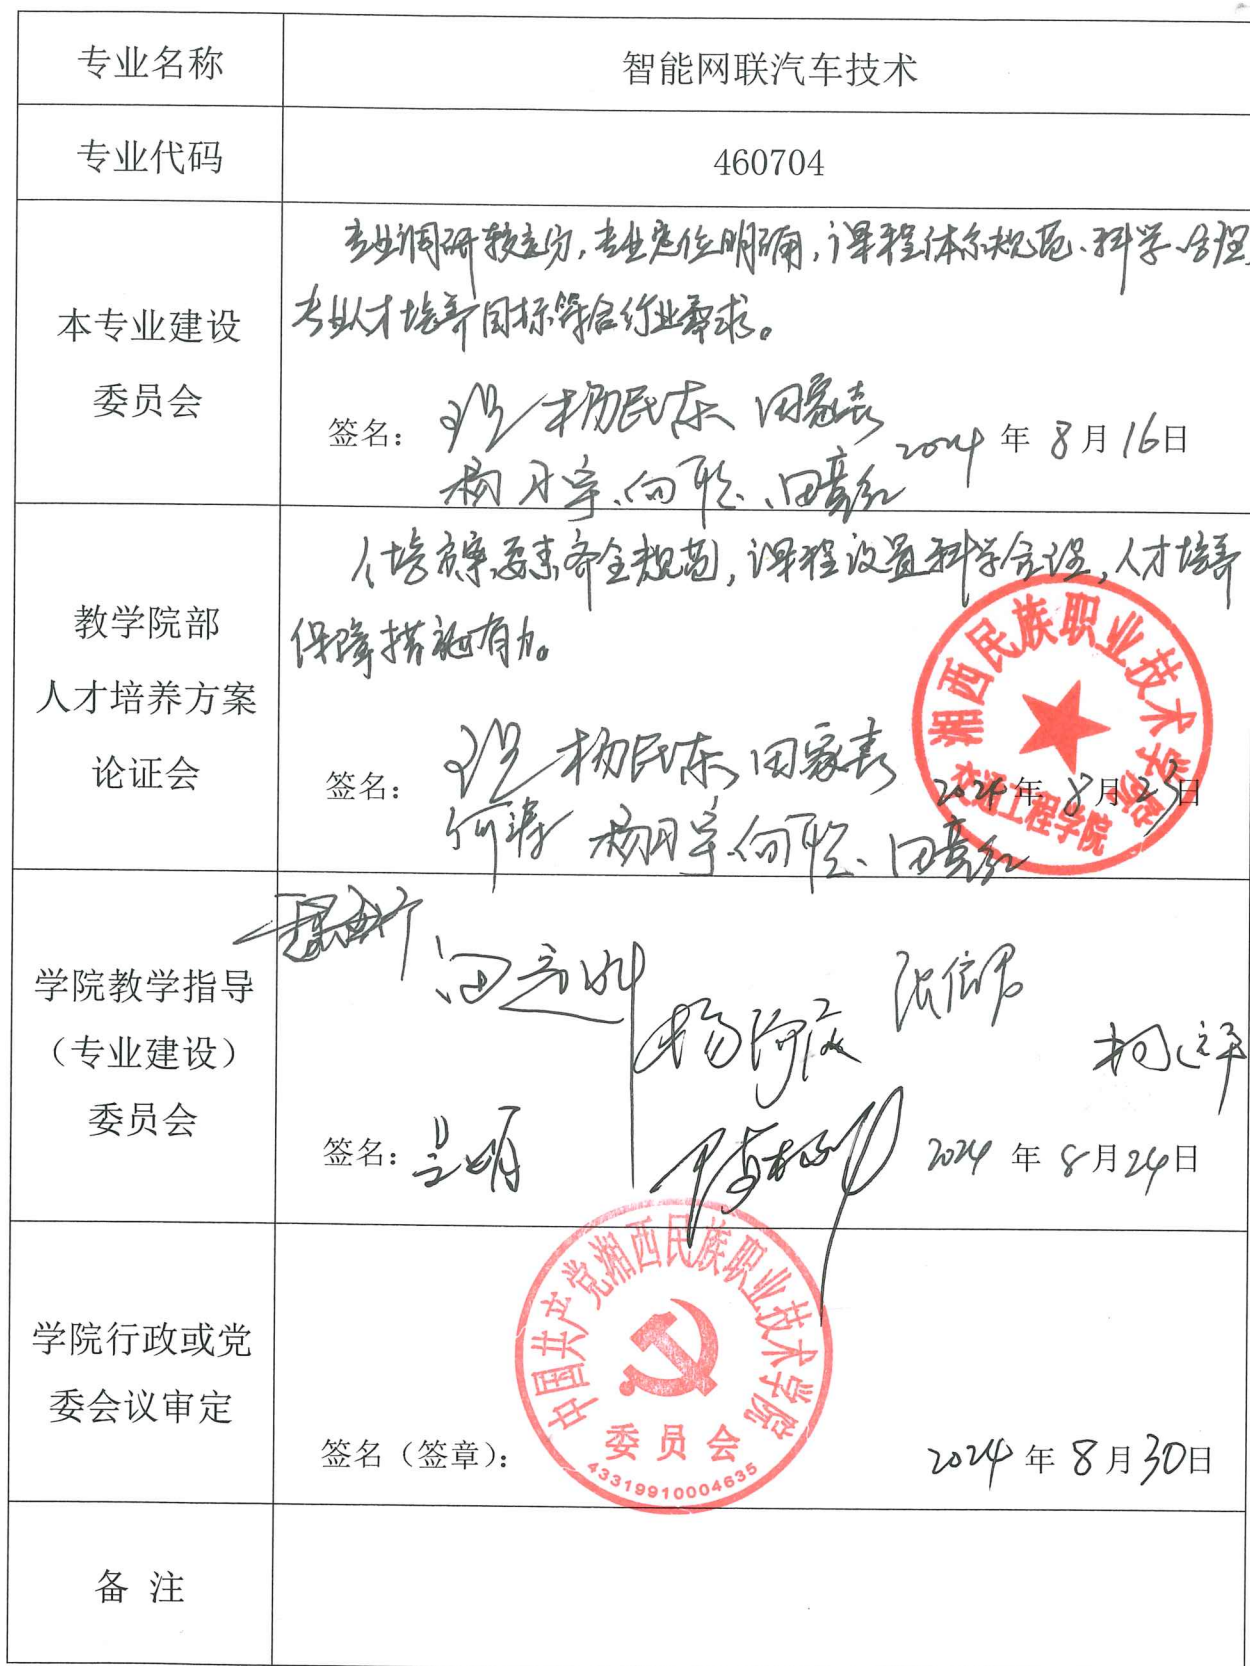 专业名称
智能网联汽车技术
专业代码
460704
本专业建设
委员会
专业调研较充分,专业定位明确,课程体系规范、科学、合理,
专业人才培养目标符合行业需求。
签名:
杨民东 田家熹
2024年8月16日
杨丹宇、向聪、田亮红
教学院部
人才培养方案
论证会
人培方案要素齐全规范,课程设置科学合理,人才培养
保障措施有力。
签名:
杨民东 田家熹
何涛 杨丹宇、向聪、田亮红
2024年8月23日
湘西民族职业技术学院
交通工程学院
学院教学指导
(专业建设)
委员会
签名:
2024年8月24日
学院行政或党
委会议审定
签名(签章):
中国共产党湘西民族职业技术学院
委员会
43319910004635
2024年8月30日
备 注